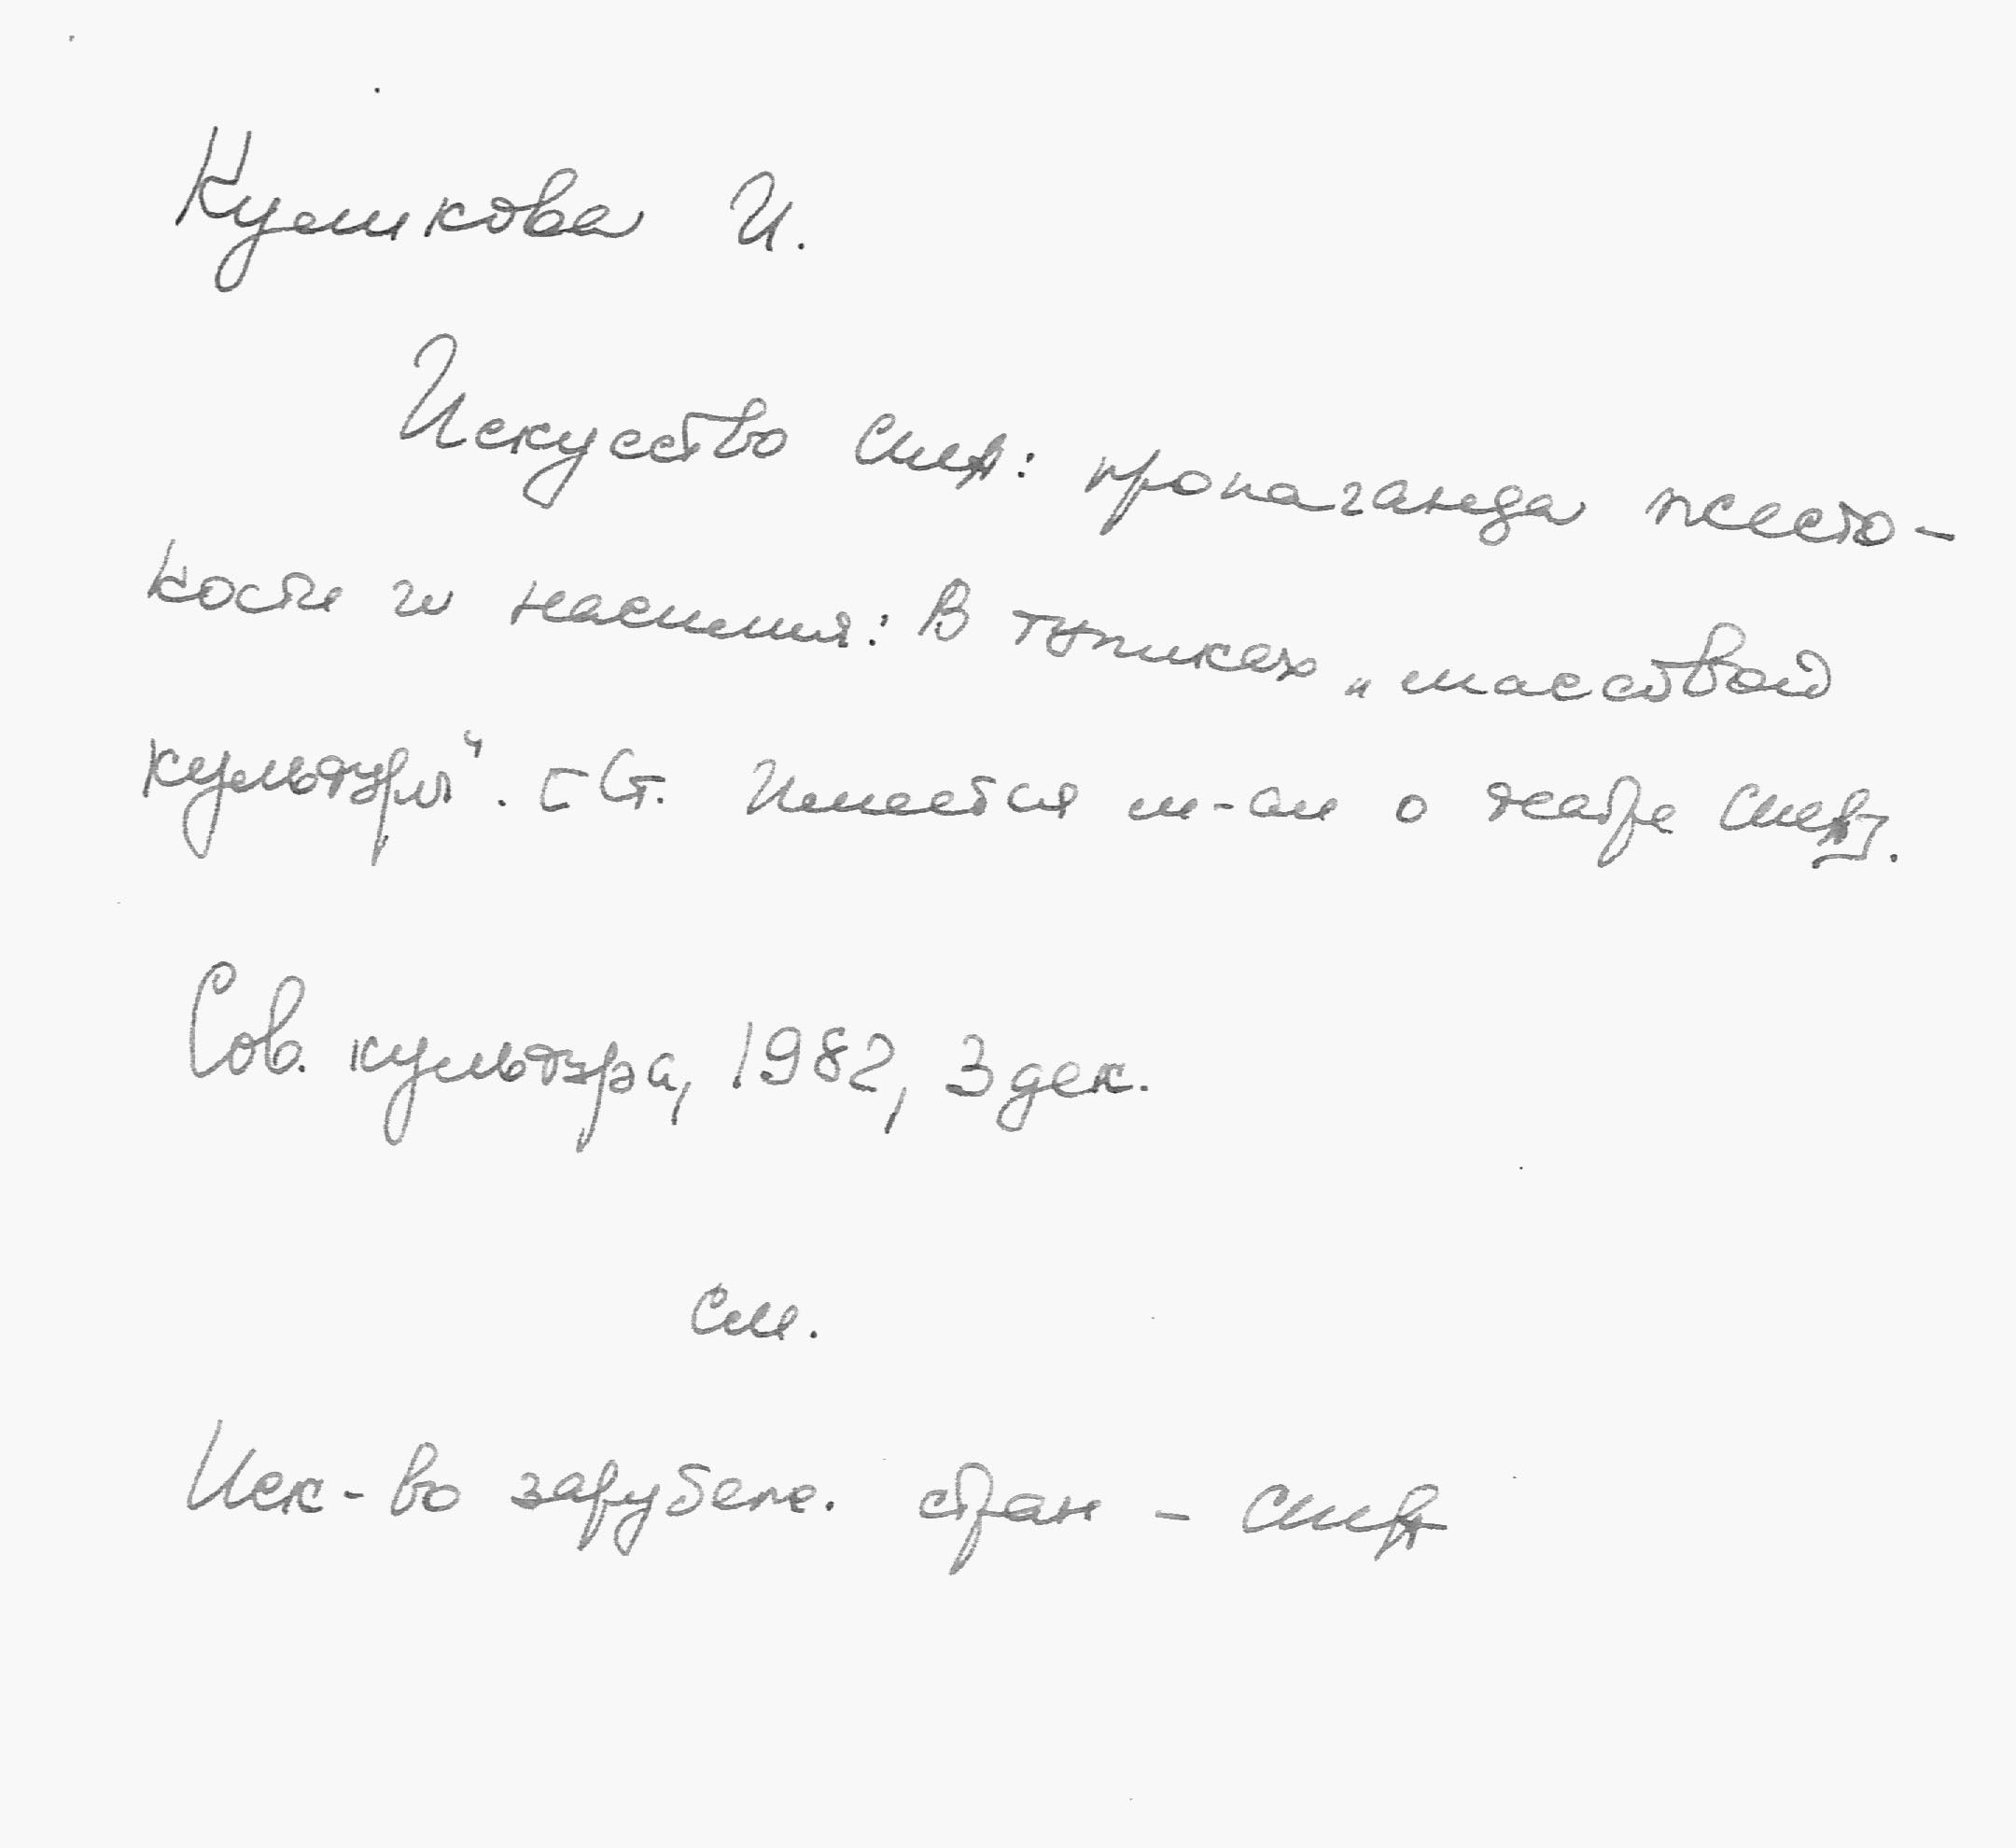 Кулешкова И.
Искусство США: пропаганда жесто-
кости и насилия: В тупиках „массовой
культуры“. [Ст. Имеется м-ал о театре США].
Сов. культура, 1982, 3 дек.
См.
Иск-во зарубеж. стран - США